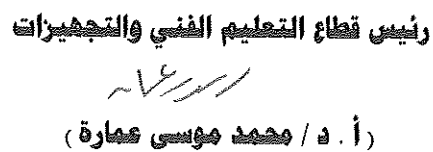 رئيس قطاع التعليم الفني والتجهيزات
(أ . د / محمد موسى عمارة)